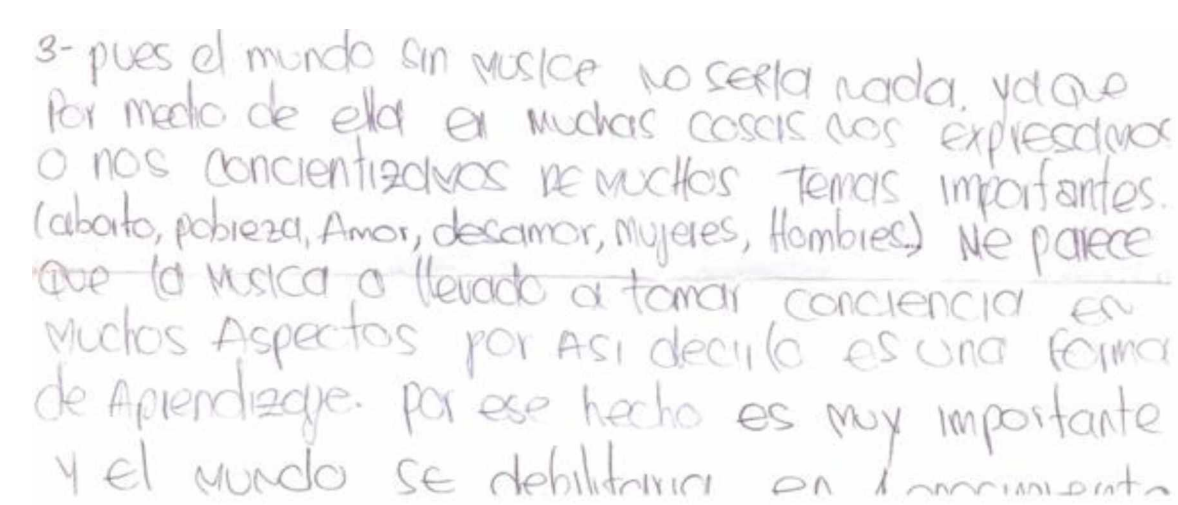 3- pues el mundo sin musice no seria nada, ya que
Por medio de ella en muchas coscis nos expresamos
o nos concientizamos de muchos temas importantes.
(aborto, pobreza, Amor, desamor, mujeres, Hombres..) Me parece
que la musica a llevado a tomar conciencia en
muchos Aspectos por Asi decirlo es una forma
de Aprendizaje. por ese hecho es muy importante
y el mundo se debilitaria en